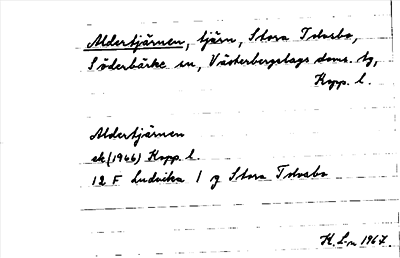 Aldertjärnen, tjärn, Stora Tolvsbo,
Söderbärke sn, Västerbergslags doms. tg,
Kopp. l.
Aldertjärnen
ek (1966) Kopp. l.
12 F Ludvika 1 g Stora Tolvsbo
H. L-n 1967.